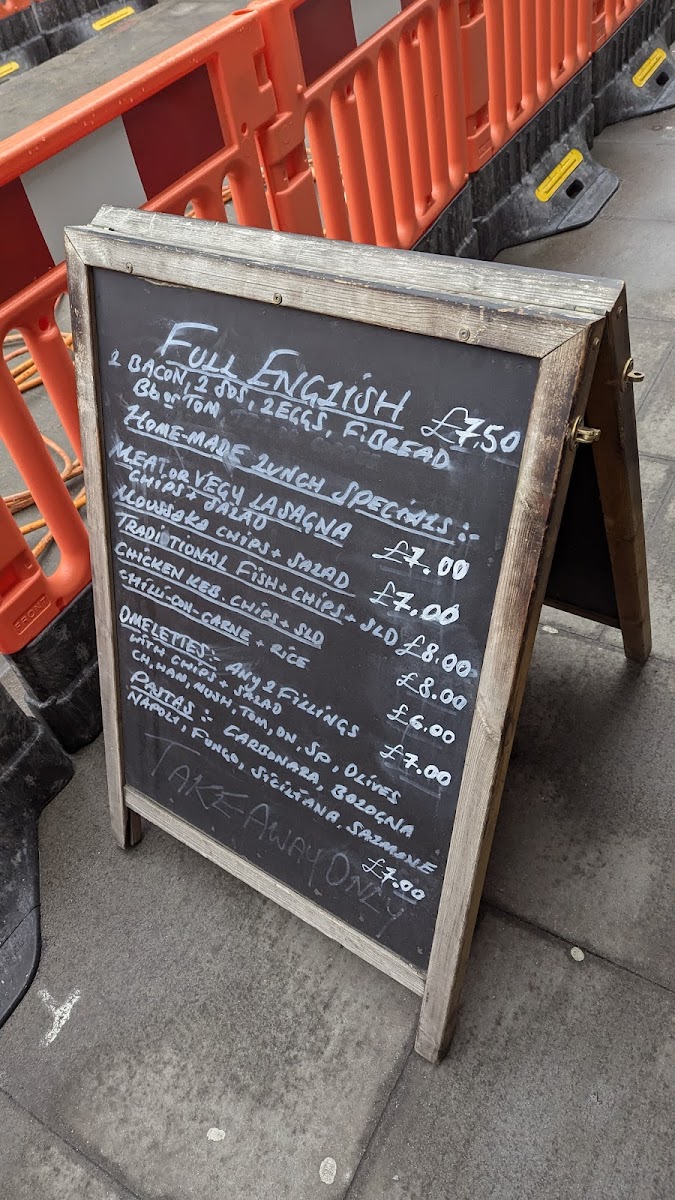 FULL ENGLISH £7.50
2 BACON, 2 SOS, 2 EGGS, F. BREAD
BB or TOM
HOME-MADE LUNCH SPECIALS :-
MEAT or VEGY LASAGNA
CHIPS + SALAD £7.00
MOUSSAKA CHIPS + SALAD £7.00
TRADITIONAL FISH + CHIPS + SLD £8.00
CHICKEN KEB. CHIPS + SLD £8.00
CHILLI-CON-CARNE + RICE £6.00
OMELETTES:- ANY 2 FILLINGS
WITH CHIPS + SALAD £7.00
CH, HAM, MUSH, TOM, ON, SP, OLIVES
PASTAS :- CARBONARA, BOLOGNA
NAPOLI, FUNGO, SICILIANA, SALMONE
£7.00
TAKE AWAY ONLY
FRONT